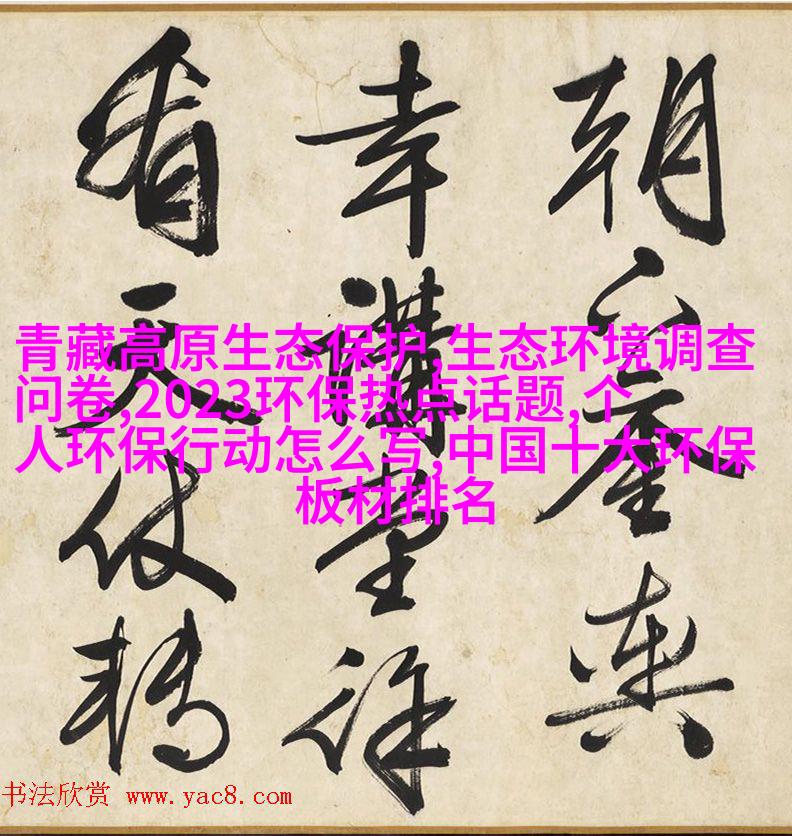 朝 輿
幸講堂徐
看天仗轉
青藏高原生态保护,生态环境调查
问卷,2023环保热点话题,个
人环保行动怎么写,中国十大环保
板材排名
书法欣赏 www.yac8.com